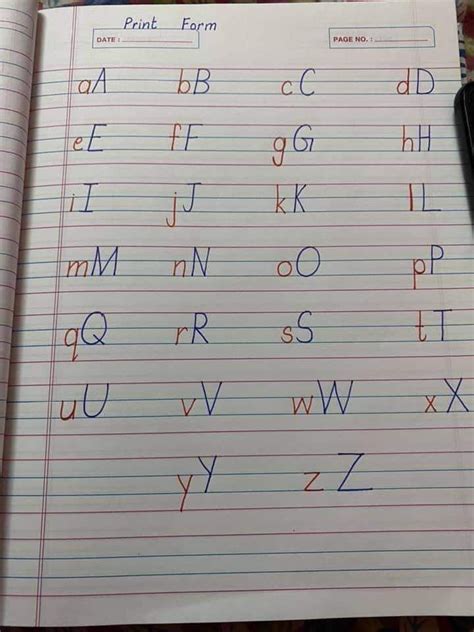 Print Form
DATE : PAGE NO. :
aA bB cC dD
eE fF gG hH
iI jJ kK lL
mM nN oO pP
qQ rR sS tT
uU vV wW xX
yY zZ